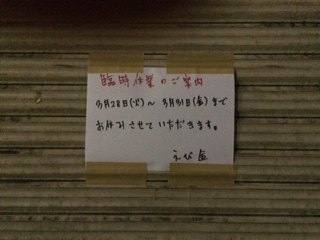 臨時休業のご案内
3月28日(火)～3月31日(金)まで
お休みさせていただきます。